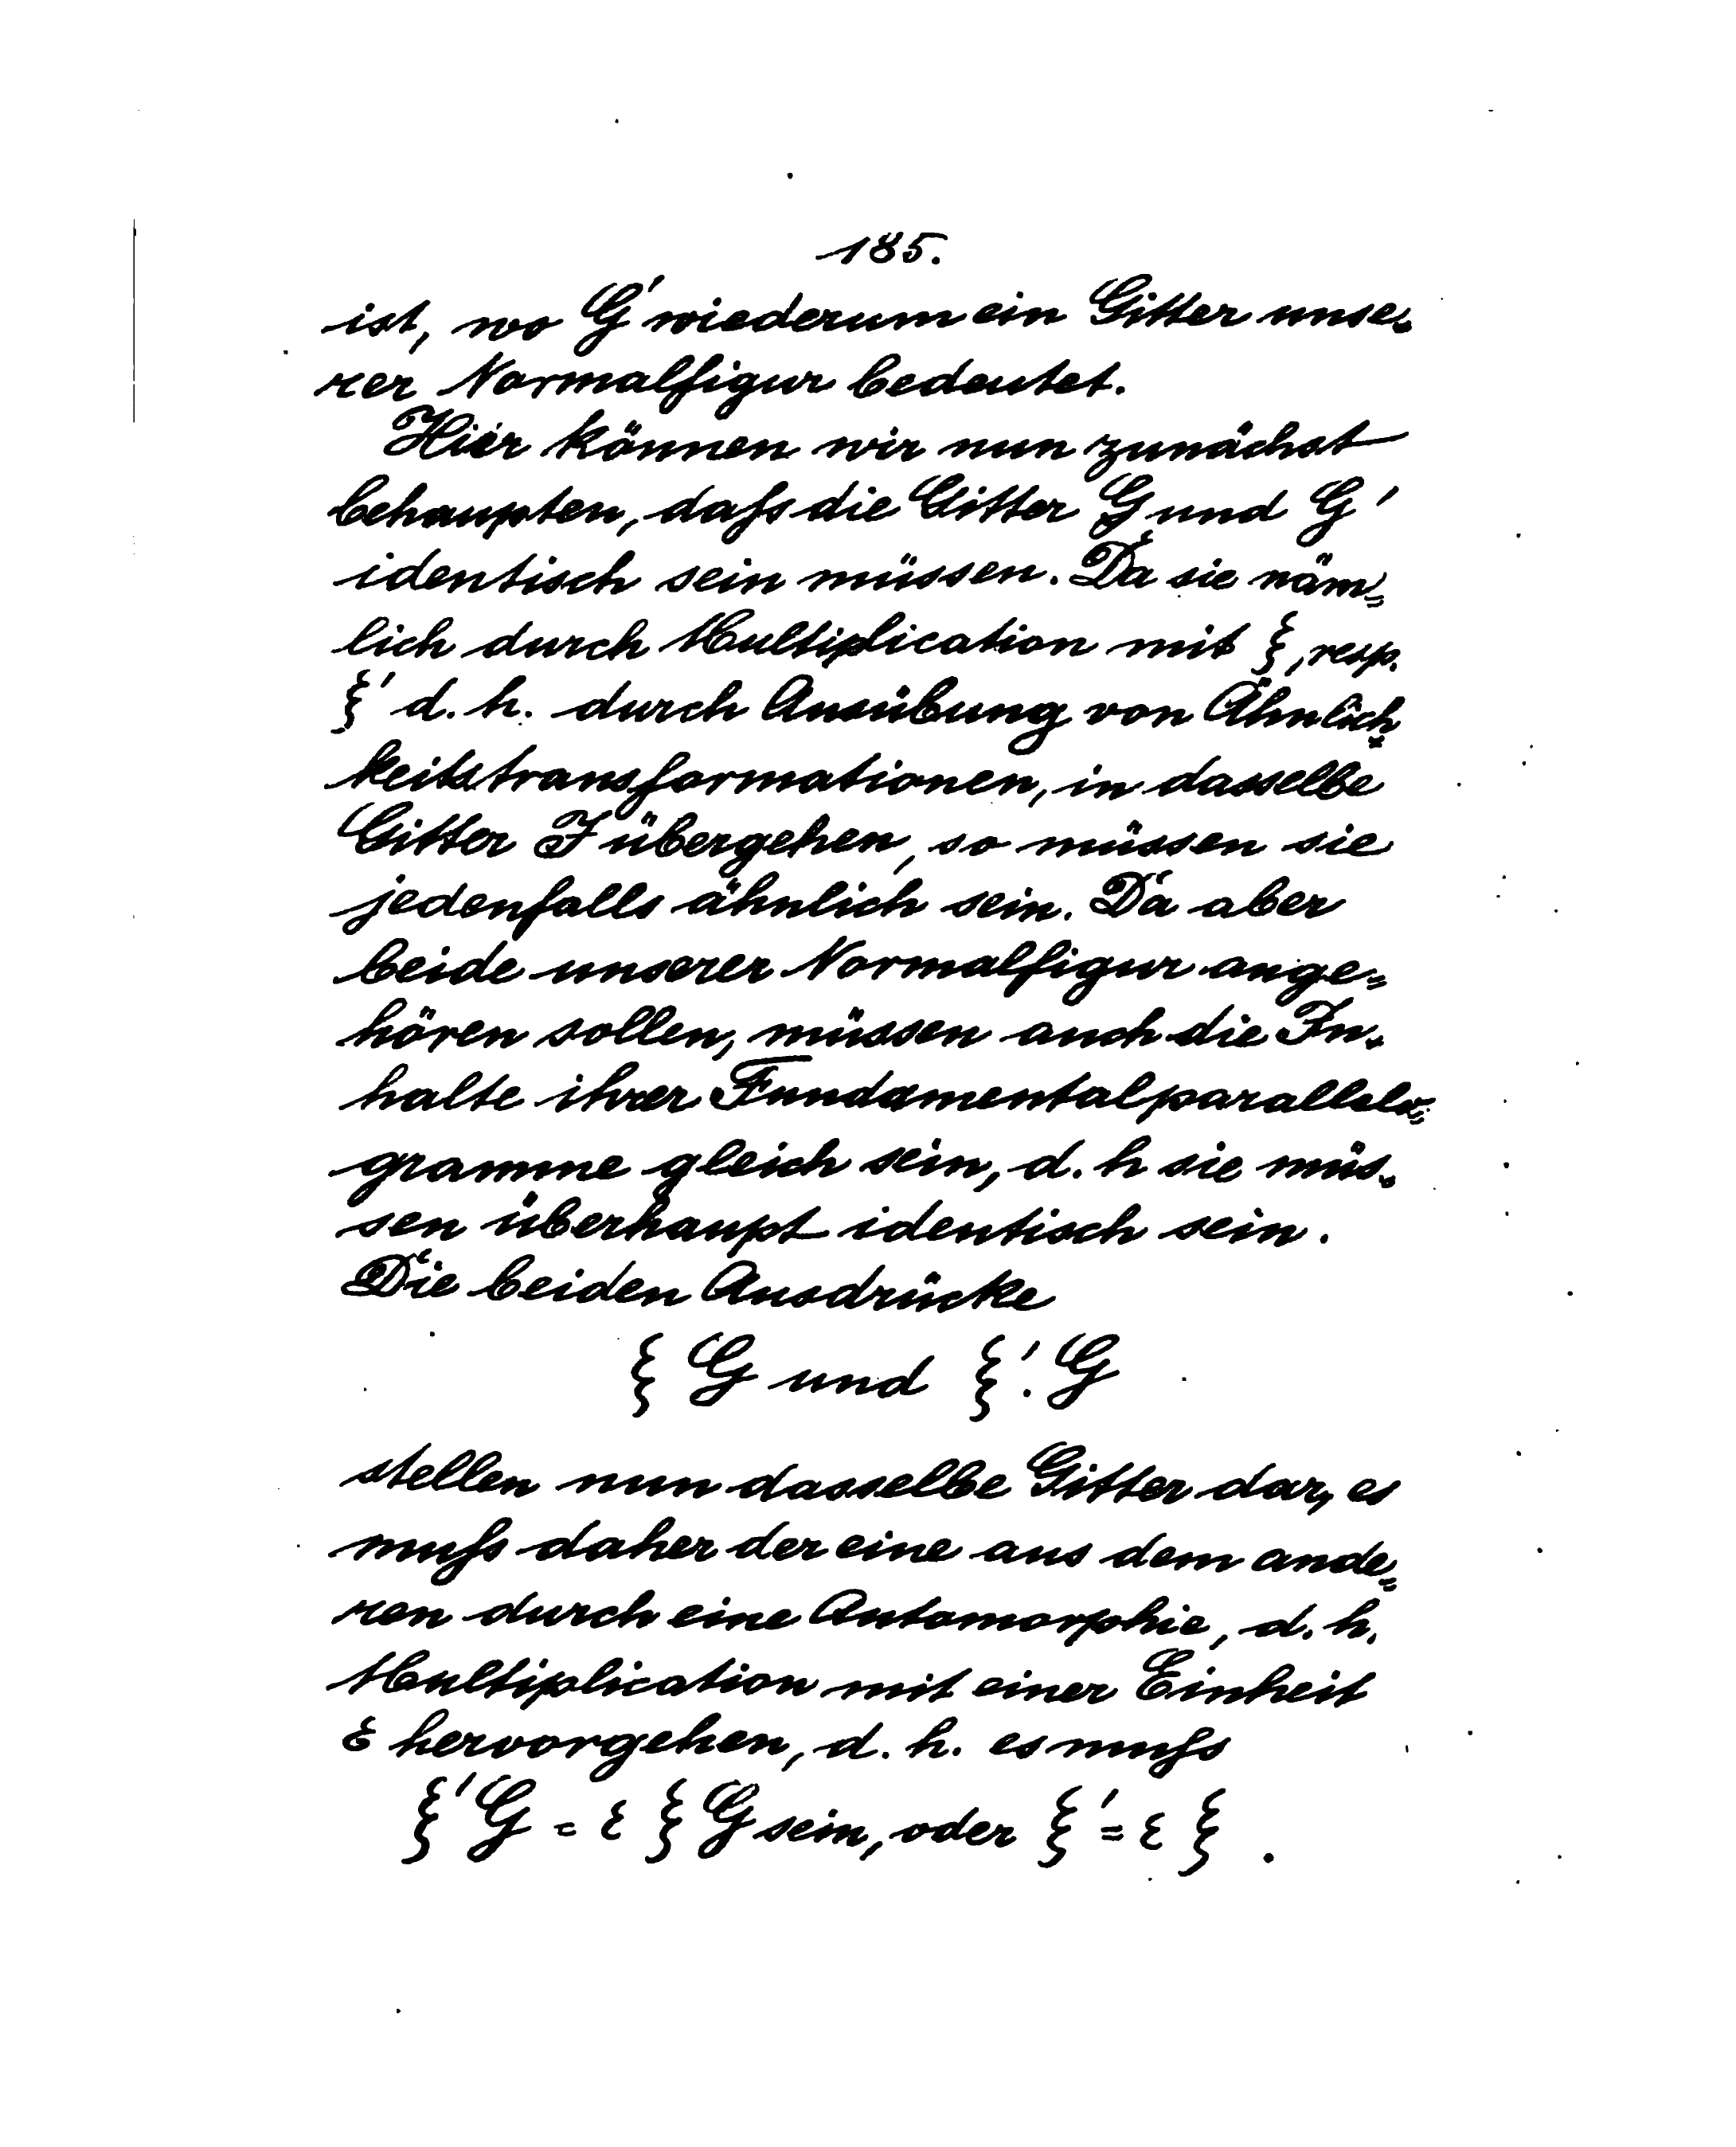 185.
ist, wo G' wiederum ein Gitter unse=
rer Normalfigur bedeutet.
Hier können wir nun zunächst
behaupten, dafs die Gitter G und G'
identisch sein müssen. Da sie näm=
lich durch Multiplication mit ξ, resp.
ξ' d. h. durch Ausübung von Ähnlich=
keitstransformationen, in dasselbe
Gitter J übergehen, so müssen sie
jedenfalls ähnlich sein. Da aber
beide unserer Normalfigur ange=
hören sollen, müssen auch die In=
halte ihrer Fundamentalparallelo=
gramme gleich sein, d. h sie müs=
sen überhaupt identisch sein.
Die beiden Ausdrücke
ξ G und ξ'. G
stellen nun dasselbe Gitter dar, es
mufs daher der eine aus dem ande=
ren durch eine Automorphie, d. h.
Multiplication mit einer Einheit
ε hervorgehen, d. h. es mufs
ξ' G = ε ξ G sein, oder ξ' = ε ξ .